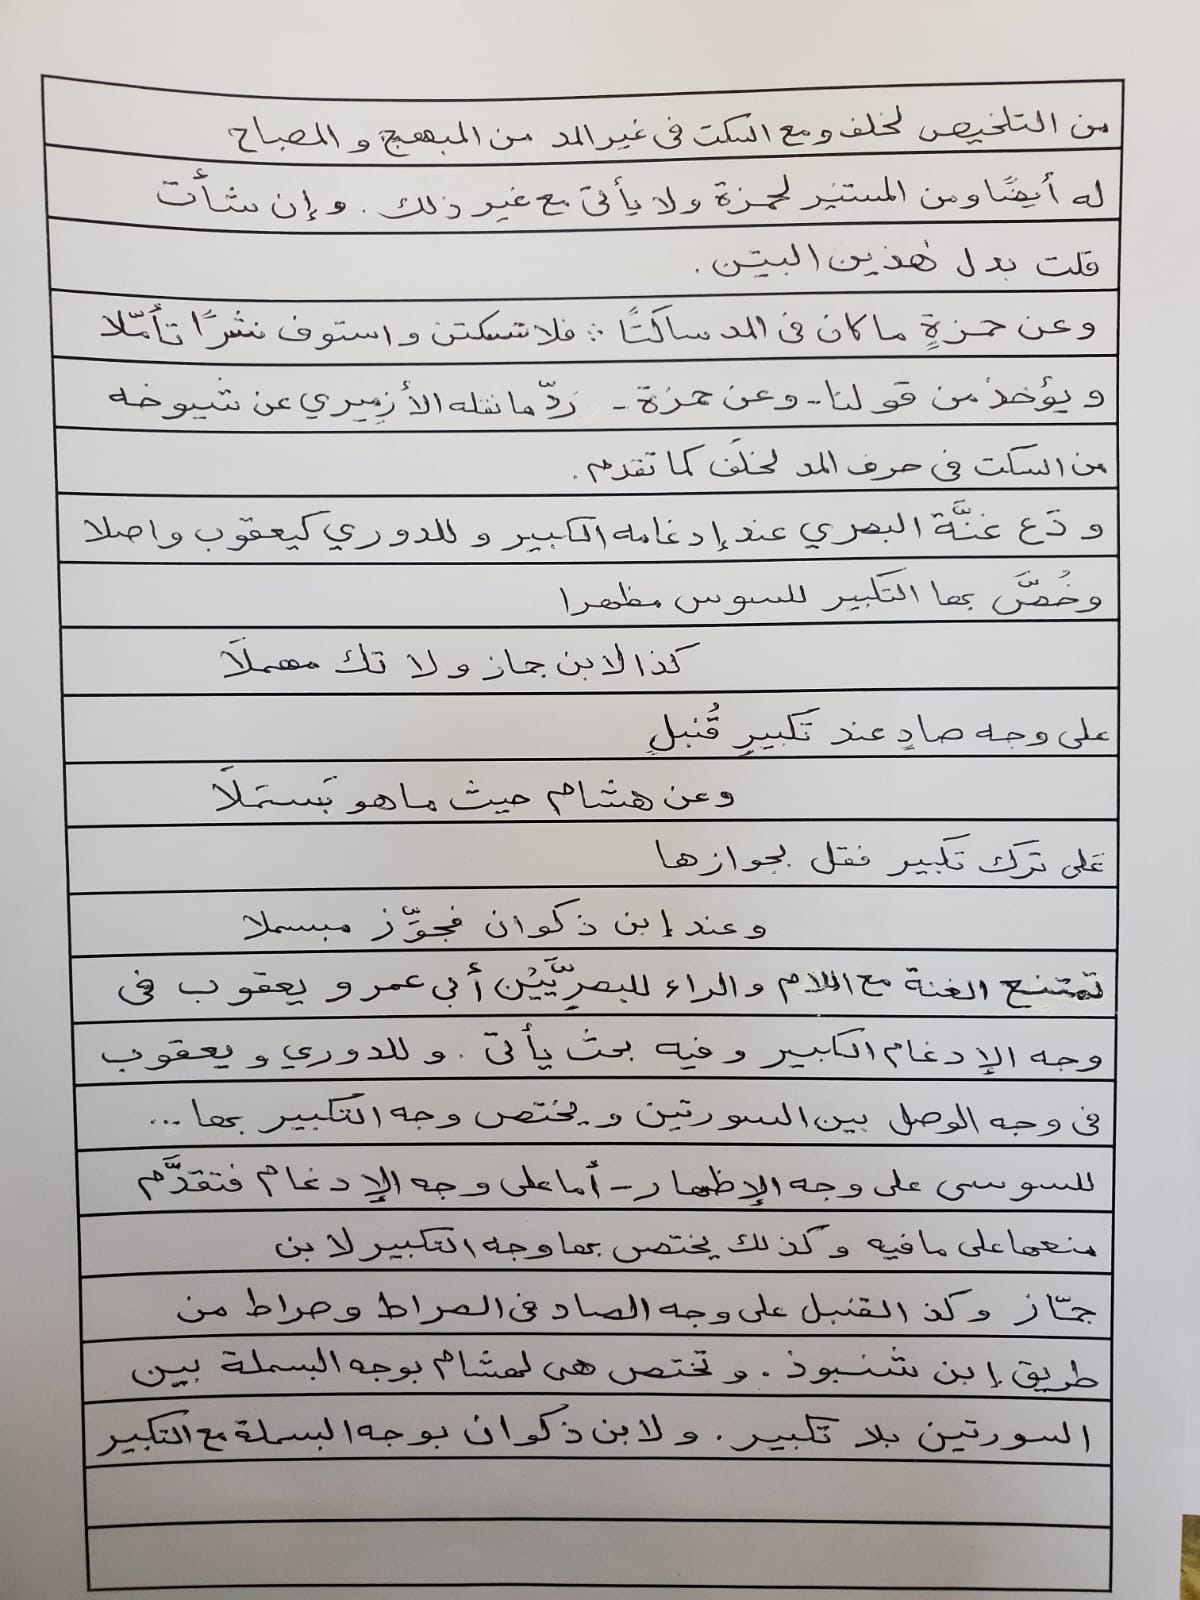 من التلخيص لخلف ومع السكت فى غير المد من المبهج و المصباح
له أيضًا ومن المستنير لحمزة ولا يأتى مع غير ذلك . و إن شأت
قلت بدل هٰذين البيتن .
وعن حمزةٍ ما كان فى المد ساكتًا ∴ فلا تسكتن و استوف نشرًا تأمّلا
ويؤخذ من قولنا - وعن حمزة - ردّ ما نقله الأزميري عن شيوخه
من السكت فى حرف المد لخلَف كما تقدم .
و دَع غنَّة البصري عند إدغامه الكبير و للدوري كيعقوب واصلا
وخُصَّ بها التكبير للسوس مظهرا
كذا لابن جماز ولا تك مهملَا
على وجه صادٍ عند تكبيرِ قُنبلٍ
وعن هشام حيث ما هو بَسمَلَا
عَلى ترك تكبير فقل بجوازها
وعند إبن ذكوان فجوِّز مبسملا
تمتنع الغنة مع اللام والراء للبصرِيَّيْن أبي عمرو ويعقوب فى
وجه الإدغام الكبير وفيه بحث يأتى . و للدوري ويعقوب
فى وجه الوصل بين السورتين ويختص وجه التكبير بها ...
للسوسى على وجه الإظهار - أما على وجه الإدغام فتقدَّم
منعها على مافيه وكذلك يختص بها وجه التكبير لابن
جمّاز وكذ القنبل على وجه الصاد فى الصراط وصراط من
طريق إبن شنبوذ . و تختص هى لهشام بوجه البسملة بين
السورتين بلا تكبير . ولابن ذكوان بوجه البسملة مع التكبير